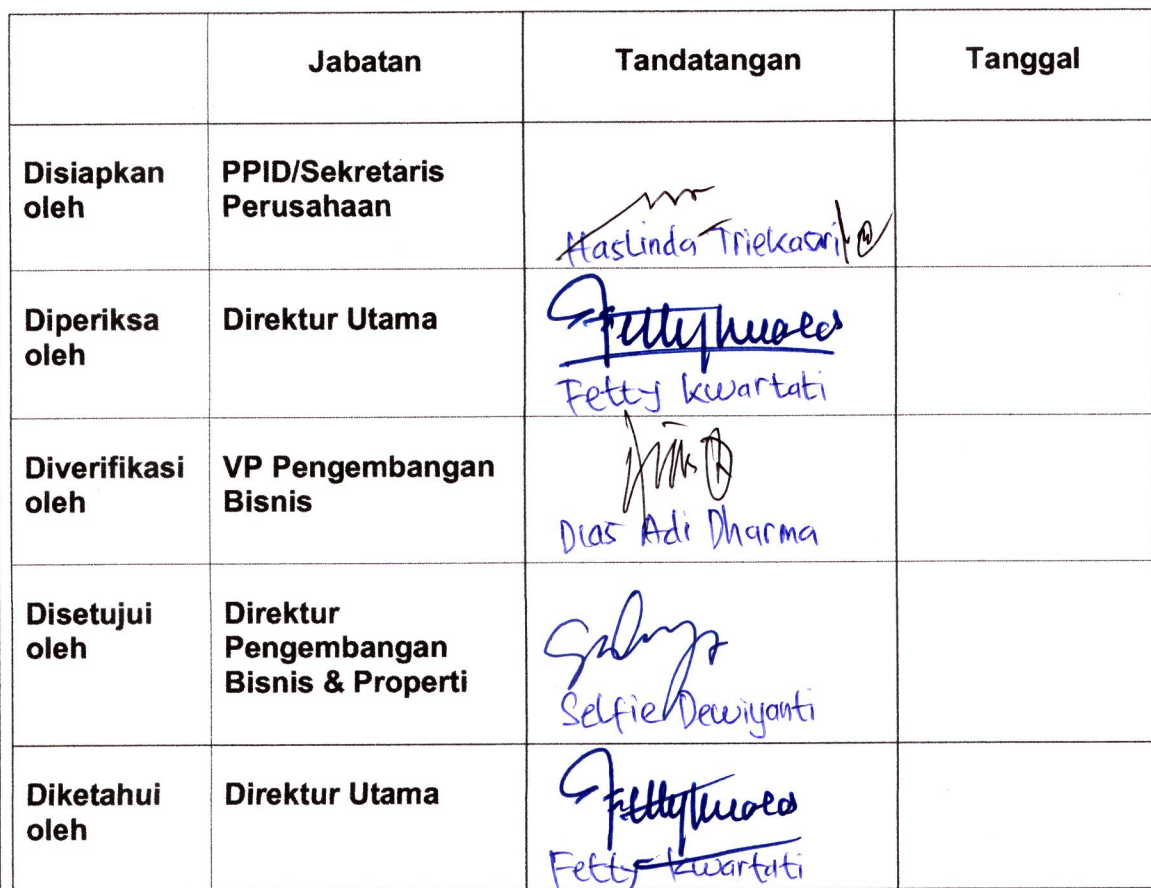 Jabatan Tandatangan Tanggal
Disiapkan PPID/Sekretaris
oleh Perusahaan
Haslinda Triekasari
Diperiksa Direktur Utama
oleh
Fetty Kwartati
Diverifikasi VP Pengembangan
oleh Bisnis
Dias Adi Dharma
Disetujui Direktur
oleh Pengembangan
Bisnis & Properti
Selfie Dewiyanti
Diketahui Direktur Utama
oleh
Fetty Kwartati